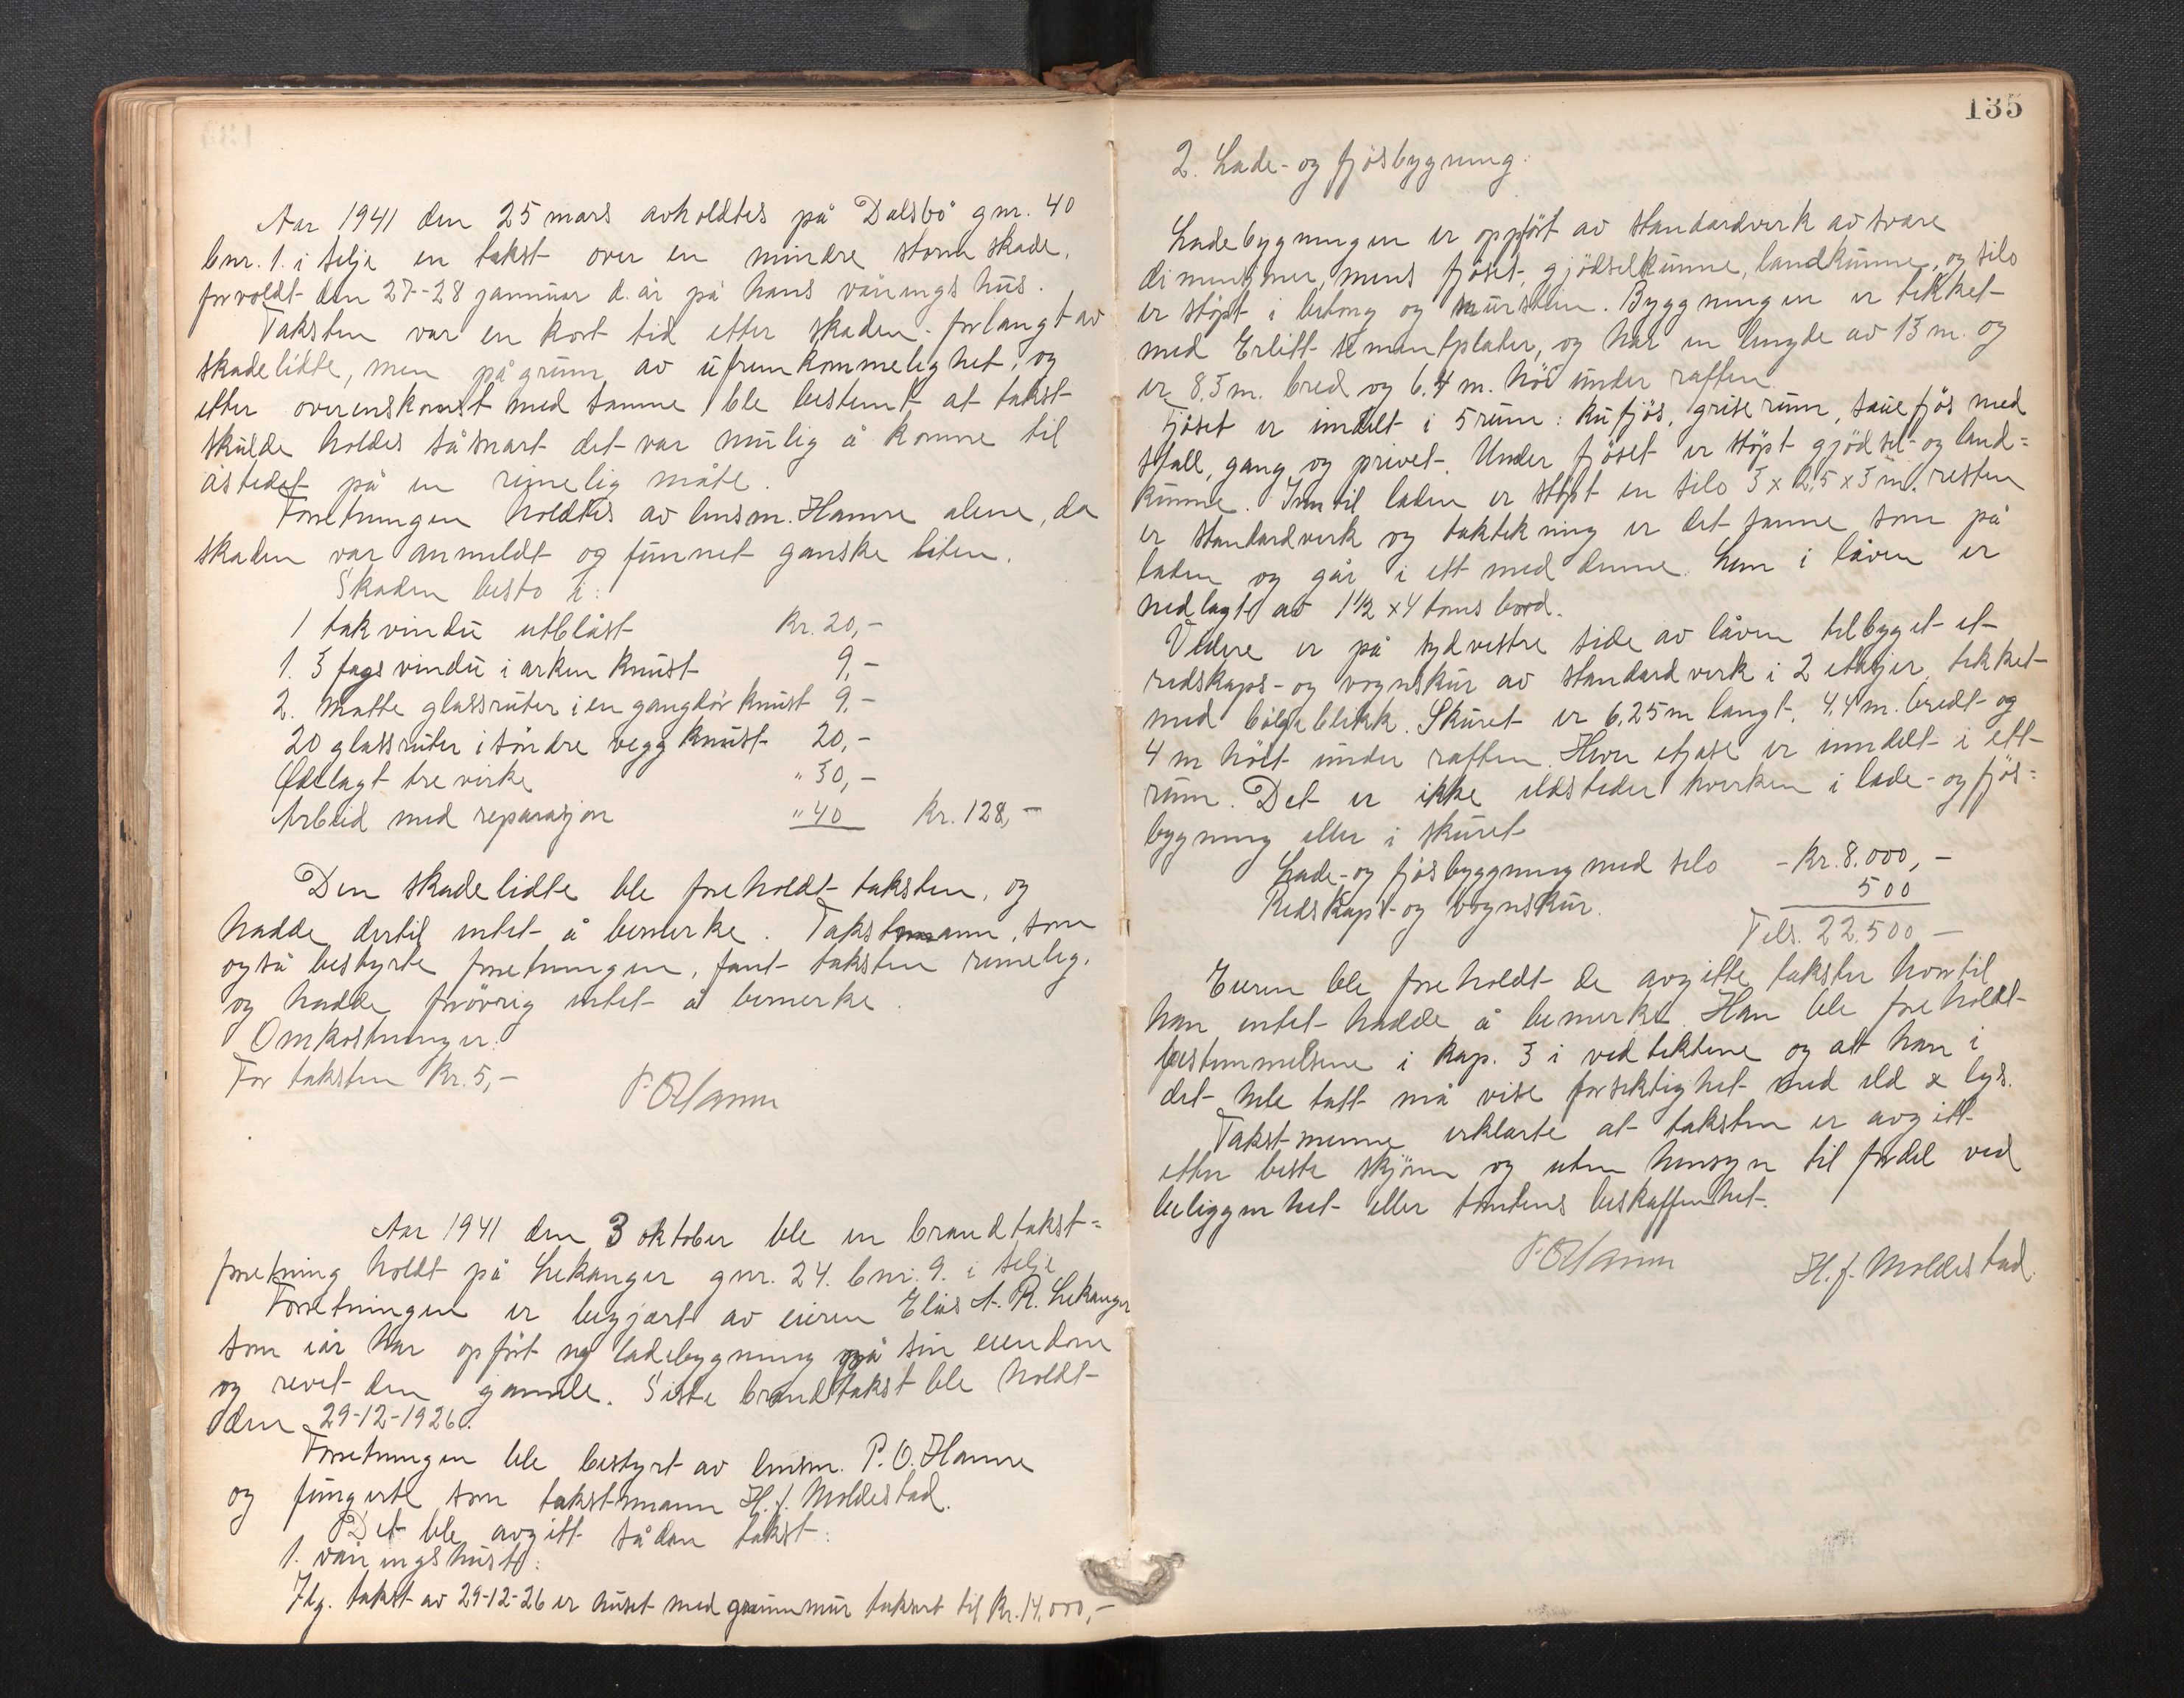 Aar 1941 den 25 mars avholdtes på Dalsbö gnr. 40
bnr. 1. i Selje en takst over en mindre storm skade,
forvoldt den 27-28 januar d. år på hans våningshus.
Taksten var en kort tid etter skaden forlangt av
skadelidte, men på grunn av ufremkommelighet, og
etter overenskomst med samme ble bestemt, at takst
skulde holdes såsnart det var mulig å komme til
åstedet på en rimelig måte.
Forretningen holdtes av lensm. Hamre alene, da
skaden var anmeldt og funnet ganske liten.
Skaden besto i:
1 takvindu utblåst Kr. 20,-
1. 3 fags vindu i arken knust 9,-
2. Matte glassruter i en gangdør knust 9,-
20 glassruter i söndre vegg knust 20,-
Ødelagt tre virke " 30,-
Arbeid med reparasjon " 40 Kr. 128,-
Den skadelidte ble foreholdt taksten, og
hadde dertil intet å bemerke. Takstmann, som
også bestyrte forretningen, fant taksten rimelig.
og hadde forövrig intet å bemerke.
Omkostninger:
For taksten Kr. 5,-
P. O. Hamre
Aar 1941 den 3 oktober ble en brandtakst=
forretning holdt på Lekanger gnr. 24. bnr. 9. i Selje
Forretningen er begjært av eieren Elias A. R. Lekanger
som i år har opfört ny ladebygning på sin eiendom
og revet den gamle. Siste brandtakst ble holdt
den 29-12-1926.
Forretningen ble bestyrt av lensm. P. O. Hamre
og fungerte som takstmann H. J. Moldestad.
Det ble avgitt sådan takst:
1. våningshuset:
Flg. takst av 29-12-26 er huset med grunnmur taksert til Kr. 14.000,-
135
2. Lade- og fjösbygning:
Ladebygningen er oppfört av standardverk av svare
dimensjoner, mens fjöset, gjödselkumme, landkumme, og silo
er stöpt i betong og mursten. Byggningen er tekket
med Eelitt sementplater, og har en lengde av 13 m. og
er 8.3 m. bred og 6.4 m. höi under raften.
Fjöset er inndelt i 5 rum: kufjös, griserum, sauefjös med
stall, gang og privet. Under fjöset er stöpt gjödsel- og land=
kumme. Inntil laden er stöpt en silo 3 x 2,5 x 3 m. resten
er standardverk og taktekning er det samme som på
laden og går i ett med denne. Lem i låven er
nedlagt av 1 1/2 x 4 toms bord.
Videre er på sydvestre side av låven tilbyget et
redskaps- og vognskur av standardverk i 2 etasjer, tekket
med bölgeblikk. Skuret er 6,25 m langt, 4,4 m. bredt og
4 m höit under raften. Hver etjase er inndelt i ett
rum. Det er ikke ildsteder hverken i lade- og fjös=
bygning eller i skuret
Lade- og fjösbyggning med silo - Kr. 8.000,-
Redskaps- og vognskur. 500
Tils. 22.500 -
Eieren ble foreholdt de avgitte takster hvortil
han intet hadde å bemerke. Han ble foreholdt
bestemmelsene i kap. 3 i vedtektene og att han i
det hele tatt må vise forsiktighet med ild & lys.
Takstmennene erklærte at taksten er avgitt
etter beste skjönn og uten hensyn til fordel ved
beliggenhet eller tomtens beskaffenhet.
P. O. Hamre H. J. Moldestad.